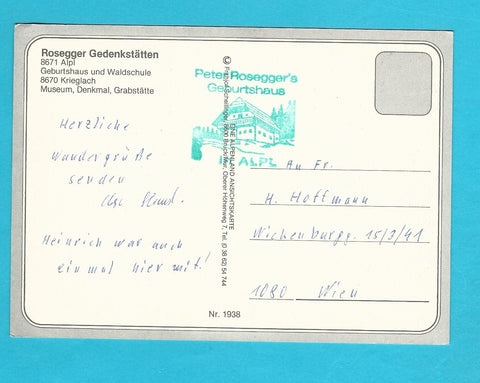 Rosegger Gedenkstätten
8671 Alpl
Geburtshaus und Waldschule
8670 Krieglach
Museum, Denkmal, Grabstätte
Herzliche
Wandergrüße
senden
Heinrich war auch
einmal hier mit!
Peter Rosegger's
Geburtshaus
IN ALPL
EINE ALPENLAND ANSICHTSKARTE
8600 Bruck/Mur, Oberer Höhenweg 7, Tel. (0 38 62) 54 744
An Fr.
H. Hoffmann
Wickenburgg. 15/3/41
1080 Wien
Nr. 1938